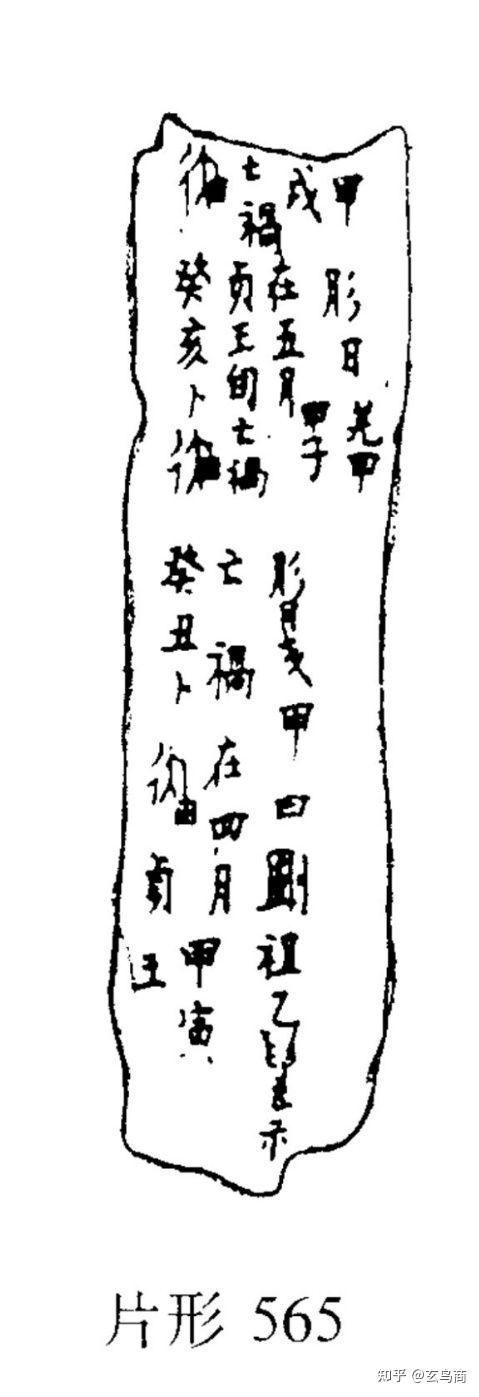 亡禍
戌
甲
癸亥卜
貞王旬亡禍
在五月
甲子
肜日
羌甲
癸丑卜
貞王
亡禍在四月
甲寅
肜日戔甲曰
祖乙
示
片形 565
知乎 @玄鸟商